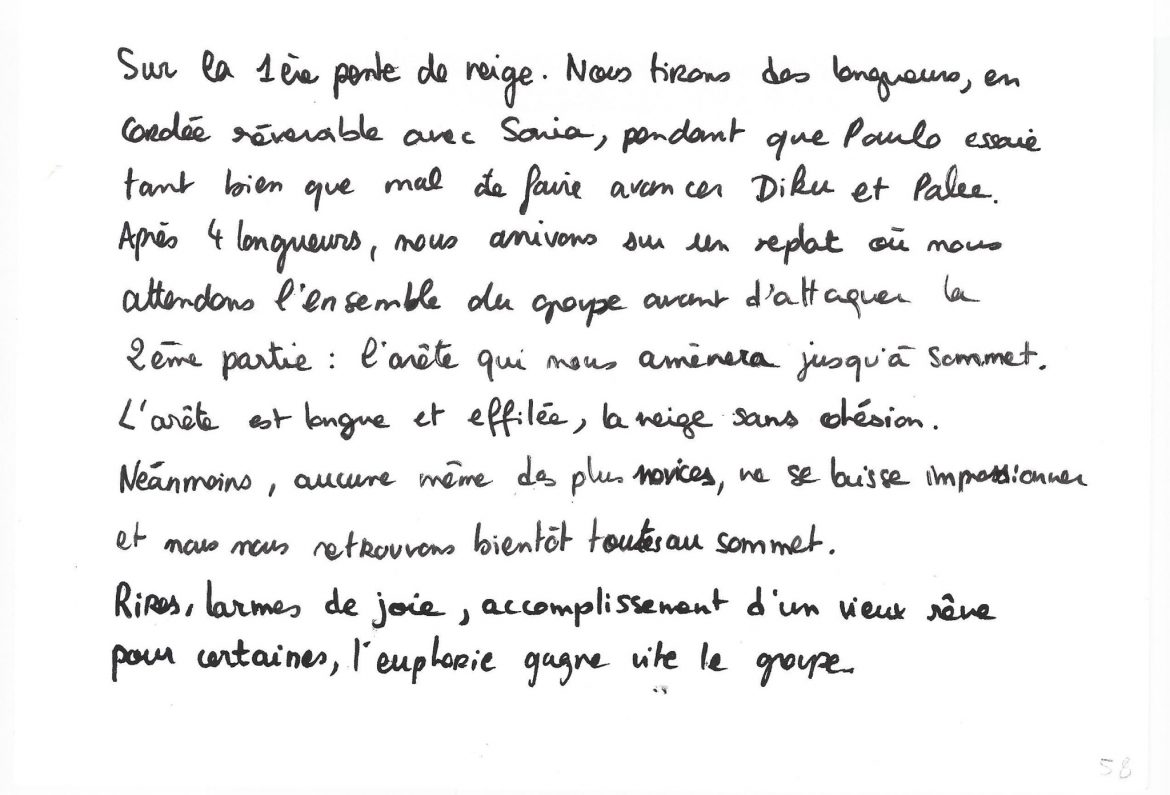 Sur la 1ère pente de neige. Nous tirons des longueurs, en
cordée réversible avec Sonia, pendant que Paulo essaie
tant bien que mal de faire avancer Diku et Palee.
Après 4 longueurs, nous arrivons sur un replat où nous
attendons l'ensemble du groupe avant d'attaquer la
2ème partie : l'arête qui nous amènera jusqu'à sommet.
L'arête est longue et effilée, la neige sans cohésion.
Néanmoins, aucune même des plus novices, ne se laisse impressionner
et nous nous retrouvons bientôt toutes au sommet.
Rires, larmes de joie, accomplissement d'un vieux rêve
pour certaines, l'euphorie gagne vite le groupe.
58